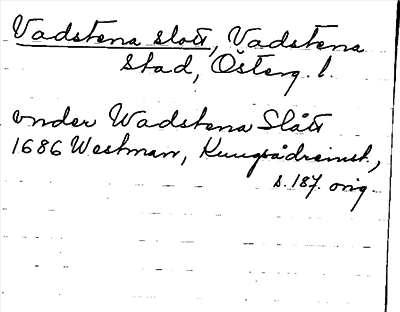 Vadstena slott, Vadstena
stad, Österg. l.
under Wadstena Slått
1686 Westman, Kungsådreinst.,
s. 187. orig.